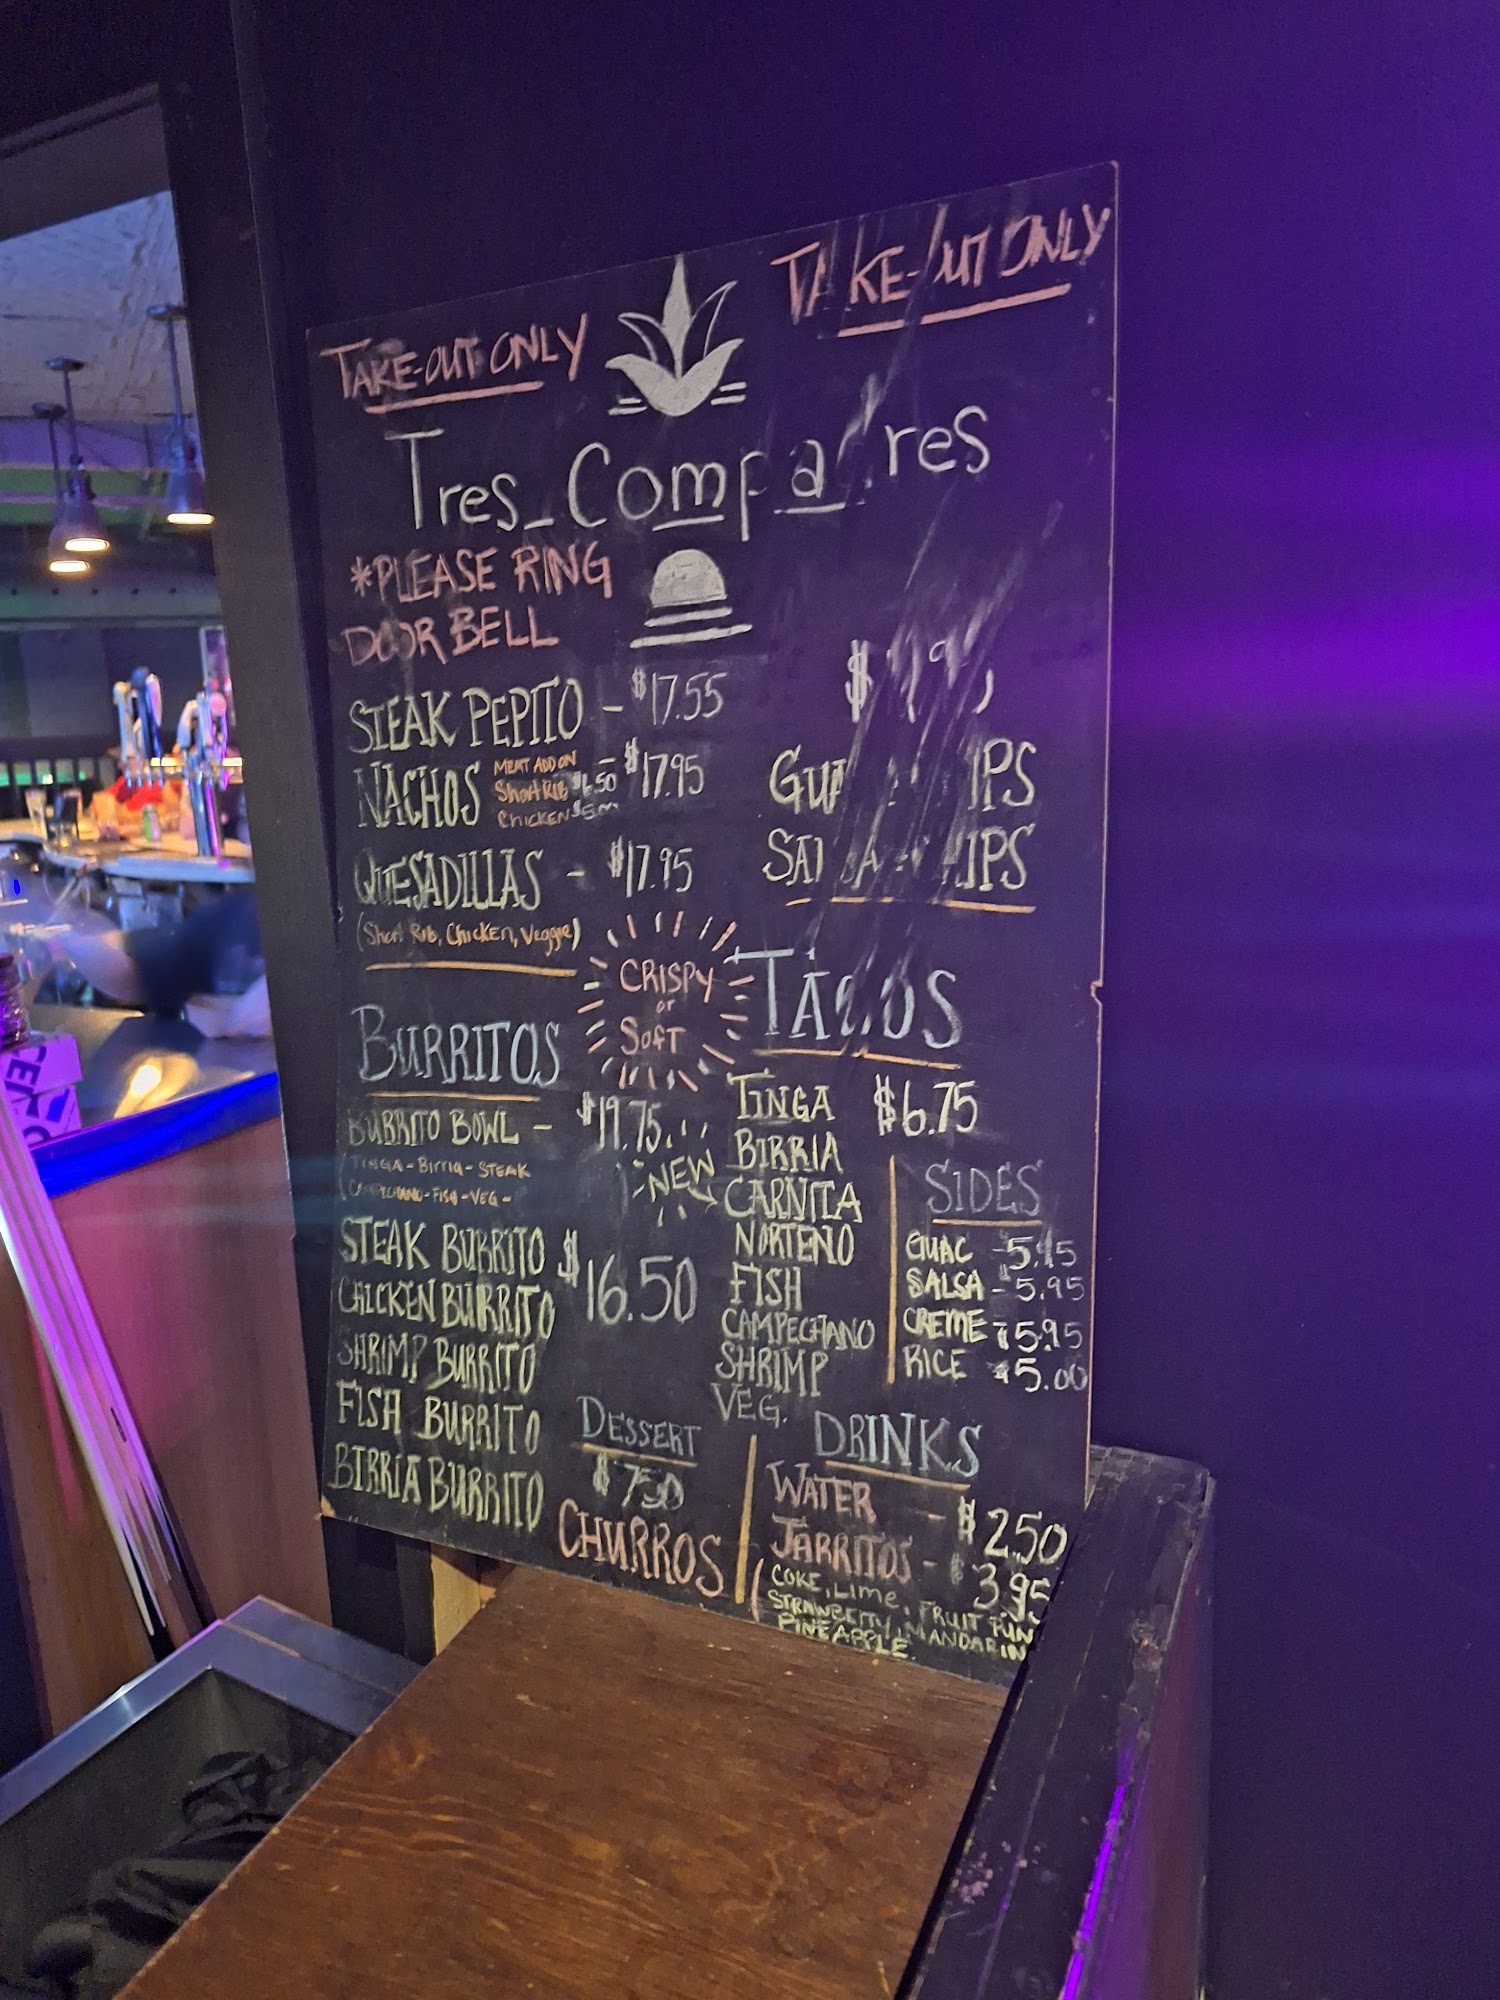 TAKE-OUT ONLY
TAKE-OUT ONLY
Tres Compadres
*PLEASE RING
DOOR BELL
STEAK PEPITO - $17.55
NACHOS MEAT ADD ON - $17.95
Short Rib $6.50
CHICKEN
QUESADILLAS - $17.95
(Short Rib, Chicken, Veggie)
CHIPS
SALSA CHIPS
CRISPY
or
SOFT
BURRITOS
BURRITO BOWL - $19.75
(TINGA - Birria - STEAK
CAMPECHANO - FISH - VEG -
NEW
STEAK BURRITO $16.50
CHICKEN BURRITO
SHRIMP BURRITO
FISH BURRITO
BIRRIA BURRITO
TACOS
TINGA $6.75
BIRRIA
CARNITA
NORTENO
FISH
CAMPECHANO
SHRIMP
VEG.
SIDES
GUAC
SALSA - $5.95
CREME - $5.95
RICE $5.00
DESSERT
$7.50
CHURROS
DRINKS
WATER - $2.50
JARRITOS - $3.95
(COKE, Lime, FRUIT PUN
STRAWBERRY, MANDARIN
PINEAPPLE